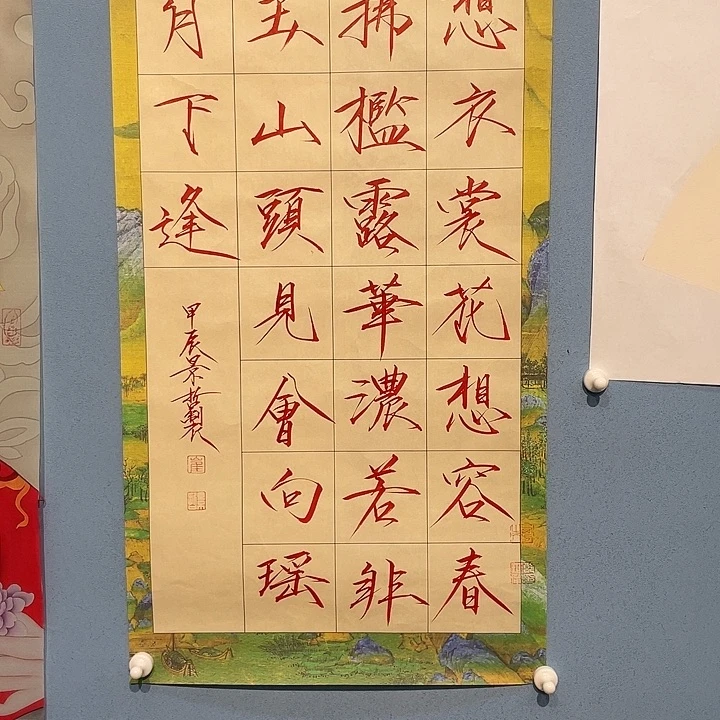 想衣裳花想容春
拂檻露華濃若非
玉山頭見會向瑶
月下逢
甲辰景哲製